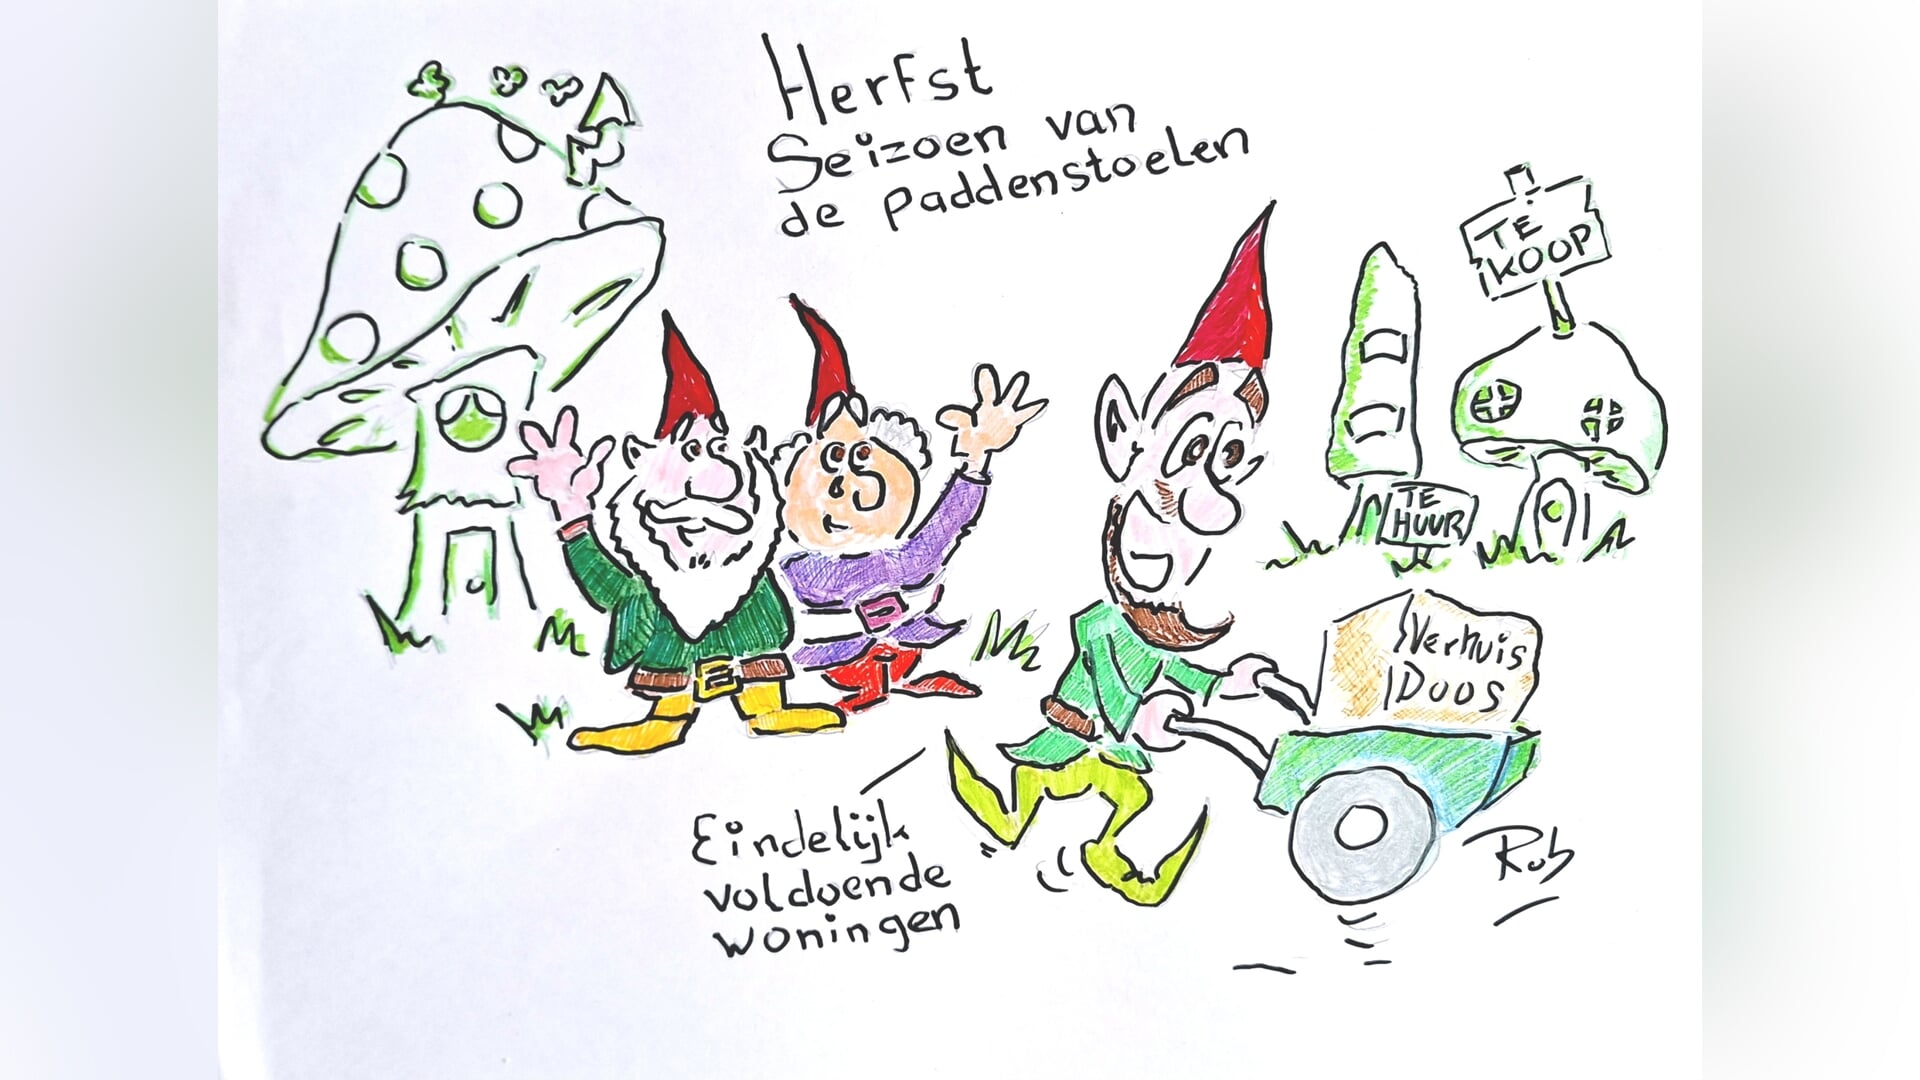 Herfst
Seizoen van
de paddenstoelen
TE
KOOP
TE
HUUR
Verhuis
Doos
Eindelijk
voldoende
woningen
Rob